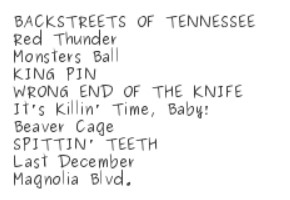 BACKSTREETS OF TENNESSEE
Red Thunder
Monsters Ball
KING PIN
WRONG END OF THE KNIFE
It's Killin' Time, Baby!
Beaver Cage
SPITTIN' TEETH
Last December
Magnolia Blvd.